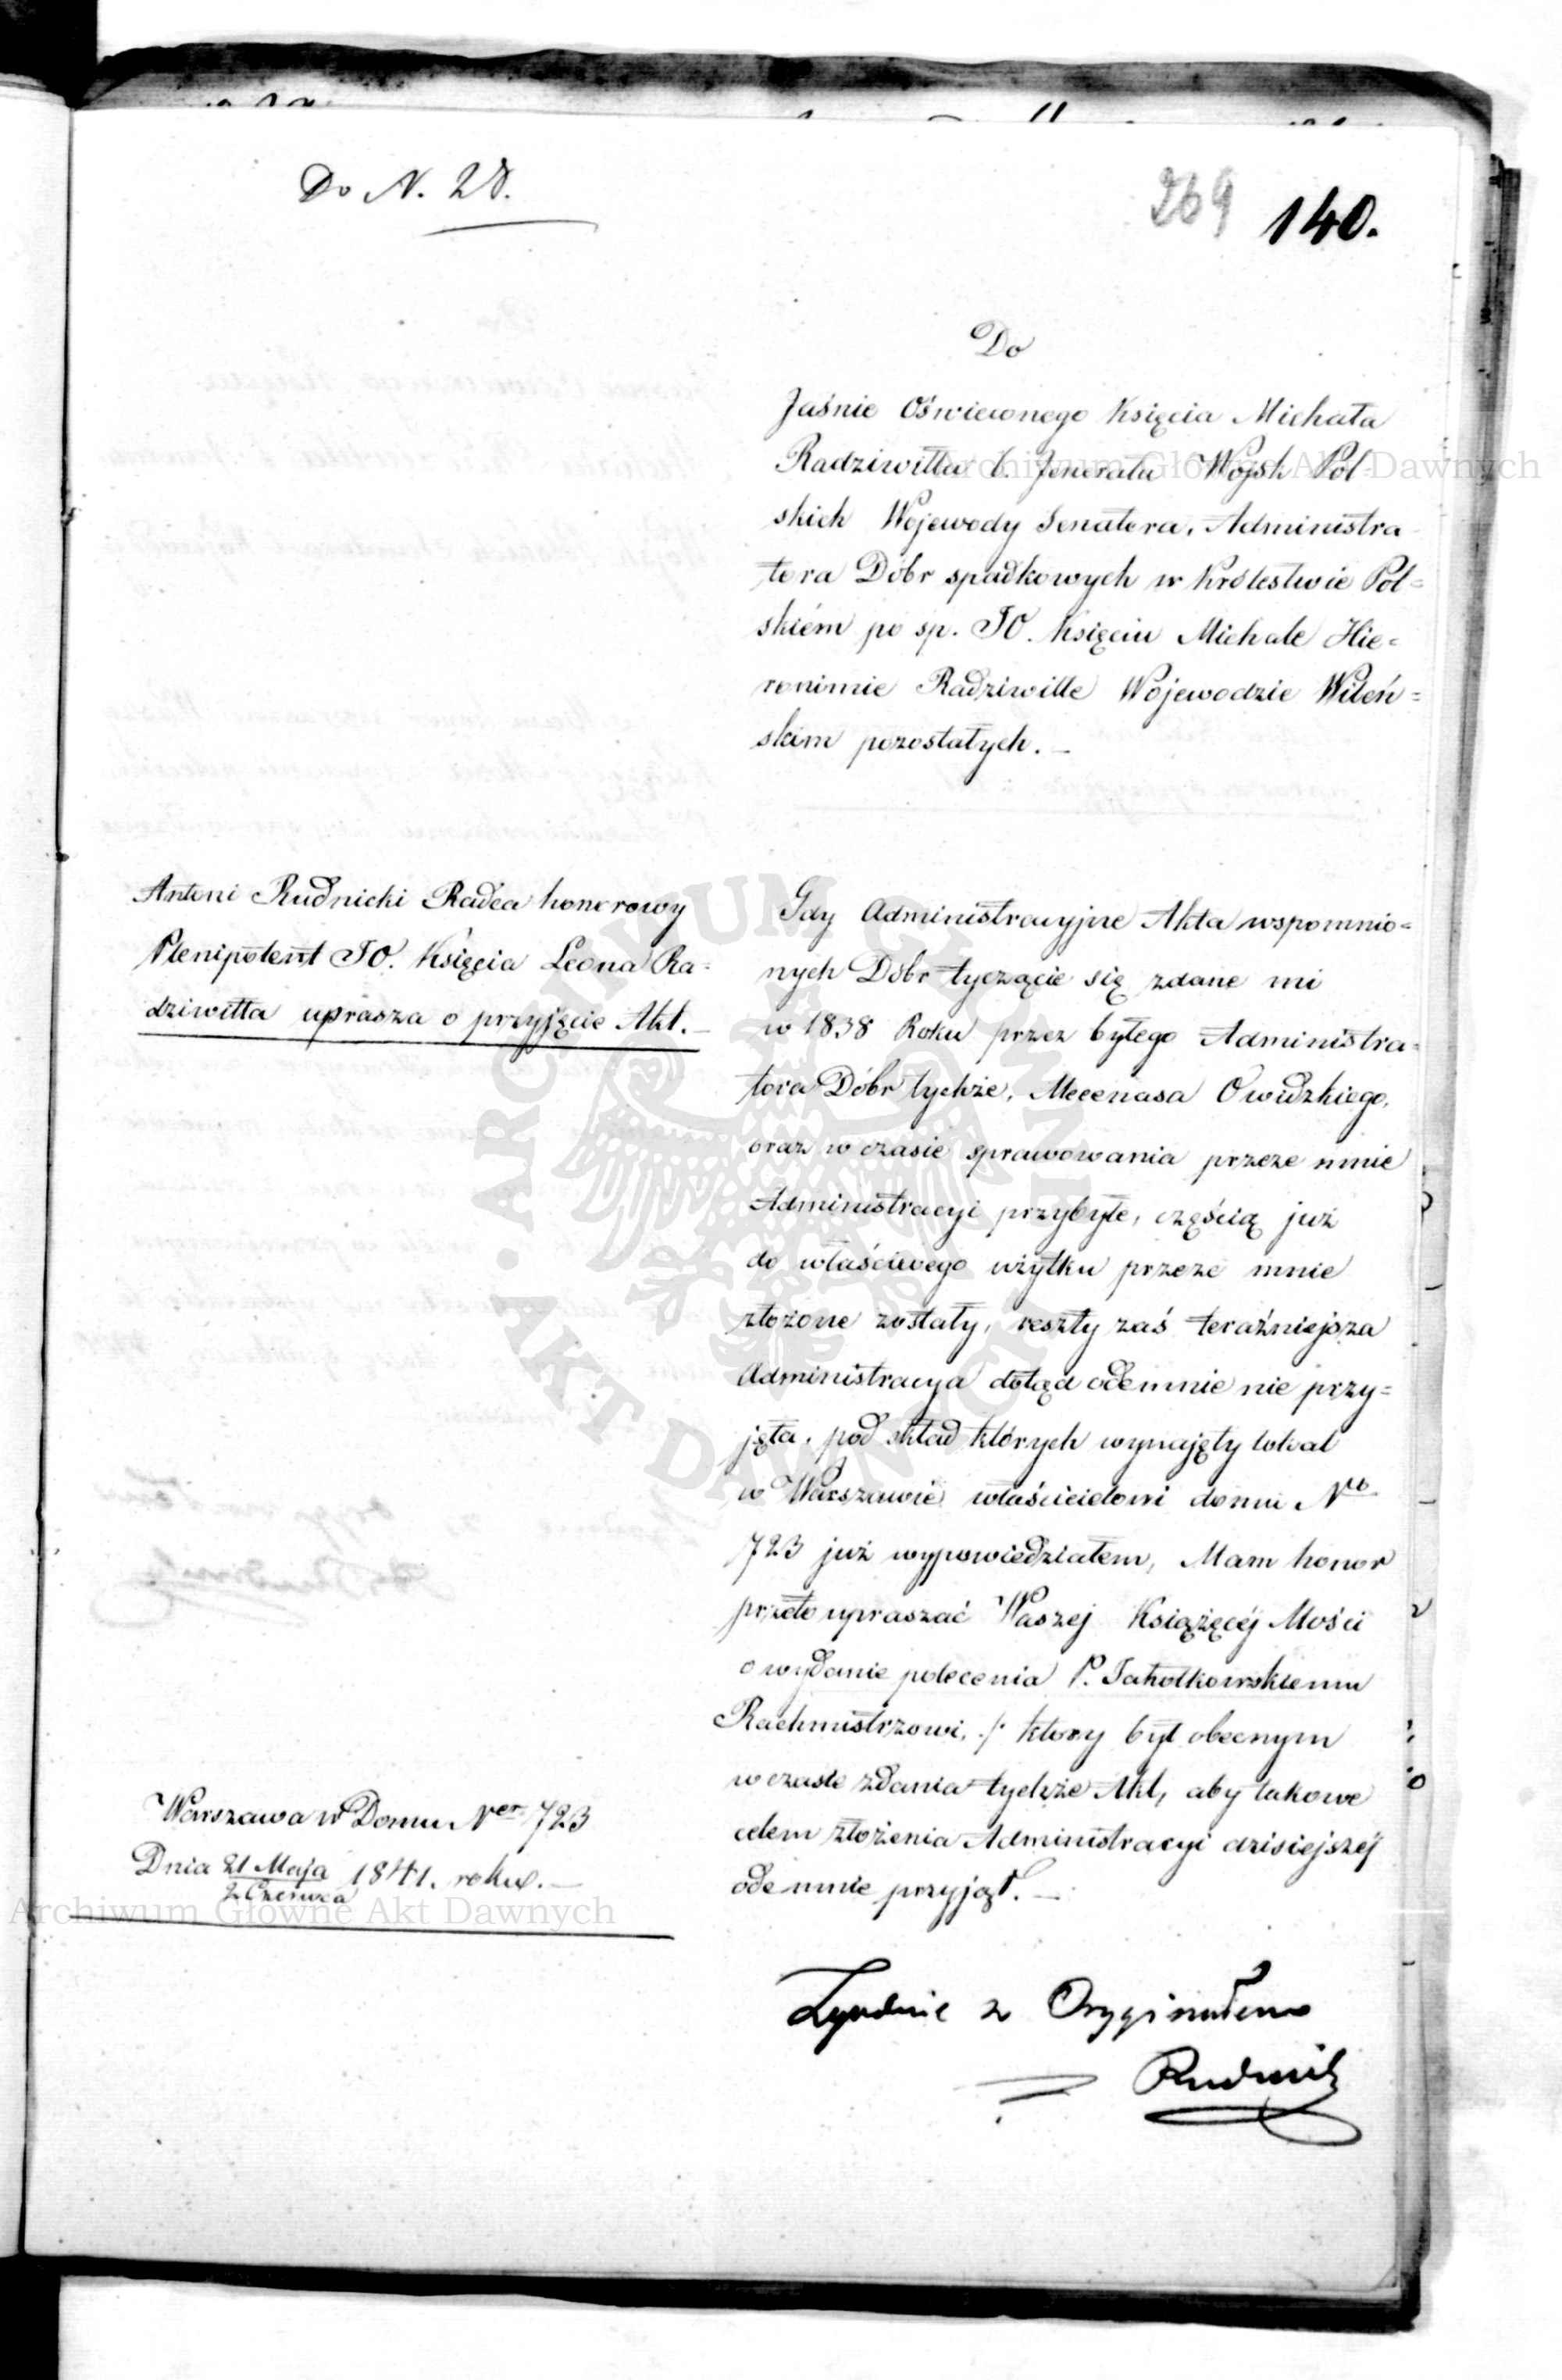 Do N. 28.
269 140.
Do
Jaśnie Oświeconego Księcia Michała
Radziwiłła b. Jenerała Wojsk Pol-
skich Wojewody Senatora, Administra-
tora Dóbr spadkowych w Królestwie Pol=
skiém po sp. JO. Księciu Michale Hie=
ronimie Radziwille Wojewodzie Wileń=
skim pozostałych. —
Antoni Rudnicki Radca honorowy
Plenipotent JO. Księcia Leona Ra=
dziwiłła uprasza o przyjęcie Akt. —
Gdy Administracyjne Akta wspomnio=
nych Dóbr tyczące się zdane mi
w 1838 Roku przez byłego Administra=
tora Dóbr tychże, Mecenasa Owidzkiego,
oraz w czasie sprawowania przeze mnie
Administracyi przybyłe, częścią już
do właściwego użytku przeze mnie
złożone zostały, reszty zaś teraźniejsza
Administracya dotąd odemnie nie przy=
jęła, pod skład których wynajęty lokal
w Warszawie właścicielowi domu Nro
723 już wypowiedziałem, Mam honor
przeto upraszać Waszej Książęcéj Mości
o wydanie polecenia P. Sakołkowskiemu
Rachmistrzowi, /: ktory był obecnym
w czasie zdania tychże Akt, aby takowe
celem złożenia Administracyi dzisiejszéj
odemnie przyjął. —
Warszawa w Domu Ner 723
Dnia 21 Maja 1841. roku. —
2 Czerwca
Zgodnie z Oryginałem
Rudnicki
Archiwum Główne Akt Dawnych
Archiwum Główne Akt Dawnych
ARCHIWUM GŁÓWNE • AKT DAWNYCH •